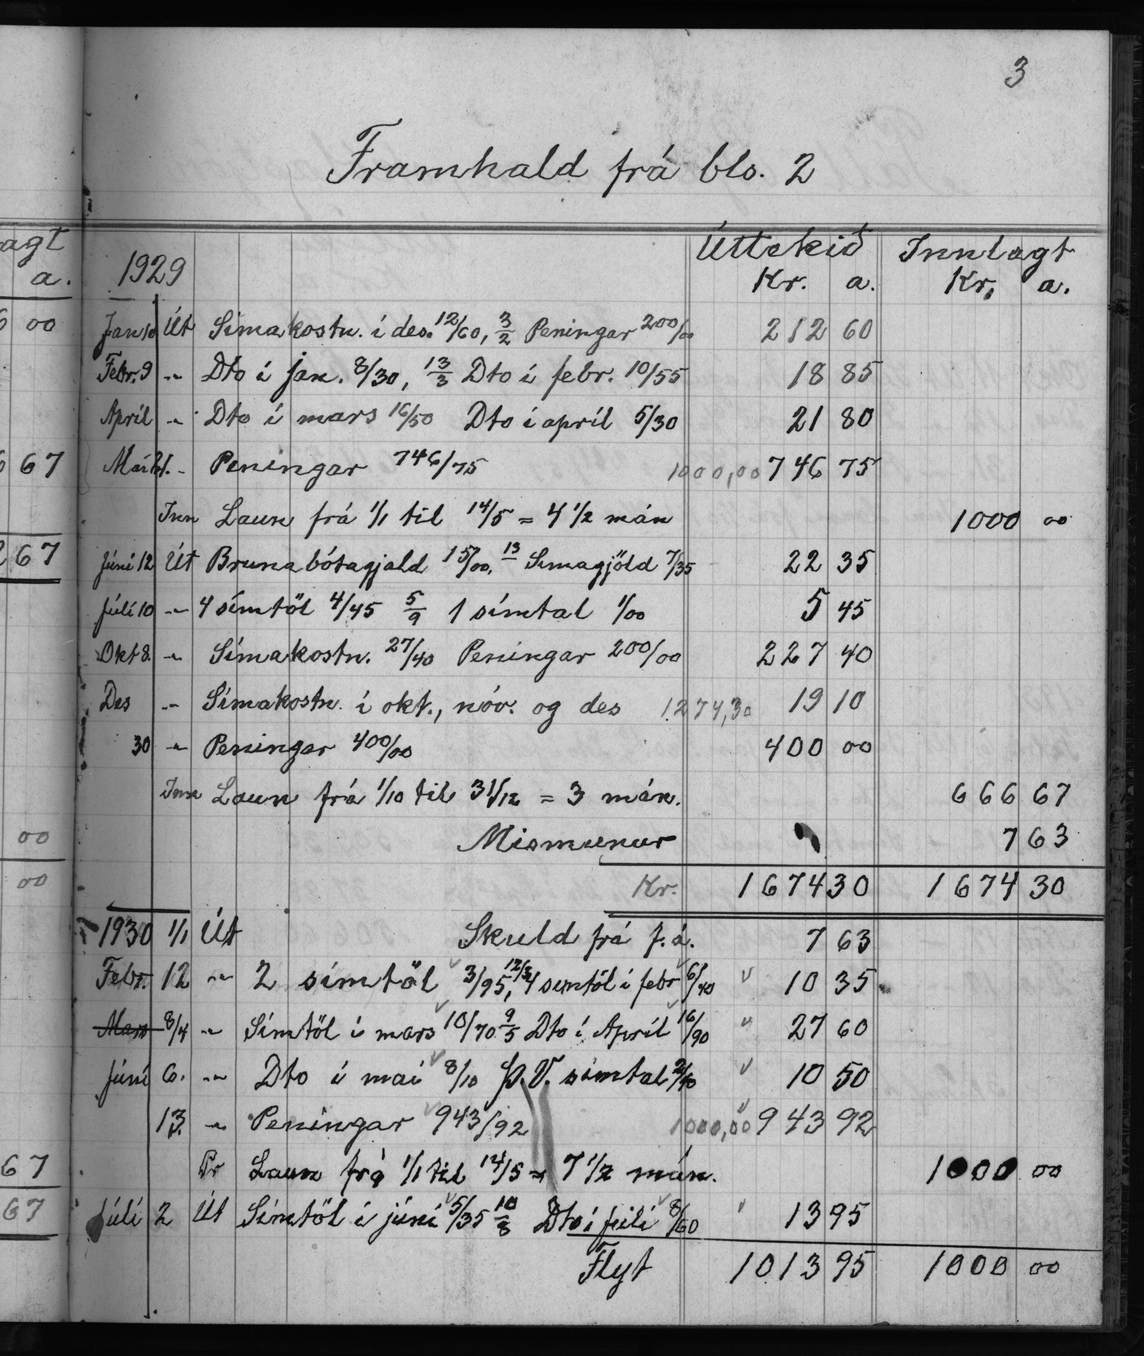 3
Framhald frá bls. 2
1929 Úttekið Innlagt
Kr. a. Kr. a.
Jan 10 Út Símakostn. í des. 12/60, 3/2 Peningar 200/00 212 60
Febr. 9 -„- Dto í jan. 8/30, 13/3 Dto í febr. 10/55 18 85
Apríl -„- Dto í mars 16/50 Dto í apríl 5/30 21 80
Peningar 746/75 1000,00 746 75
Inn Laun frá 1/1 til 14/5 = 4 1/2 mán 1000 00
Júní 12 Út Brunabótagjald 15/00, 13 Símagjöld 7/35 22 35
Júlí 10 -„- 4 símtöl 4/45 5/9 1 símtal 1/00 5 45
Okt 8. -„- Símakostn. 27/40 Peningar 200/00 227 40
Des -„- Símakostn. í okt., nóv. og des 1274,30 19 10
30 -„- Peningar 400/00 400 00
Inn Laun frá 1/10 til 31/12 = 3 mán. 666 67
Mismunur 7 63
Kr. 1674 30 1674 30
1930 1/1 Út Skuld frá f.á. 7 63
Febr. 12 -„- 2 símtöl 3/95, 12/3 4 símtöl í febr 6/40 „ 10 35
Mars 8/4 -„- Símtöl í mars 10/70 9/5 Dto í Apríl 16/90 „ 27 60
Júní 6. -„- Dto í maí 8/10 Þ.V. símtal 2/40 „ 10 50
13. -„- Peningar 943/92 1000,00 943 92
Laun frá 1/1 til 14/5 = 7 1/2 mán. 1000 00
Júlí 2 Út Símtöl í júní 5/35 10/8 Dto í júlí 8/60 „ 13 95
Flyt 1013 95 1000 00
agt
a.
00
67
67
00
00
67
67